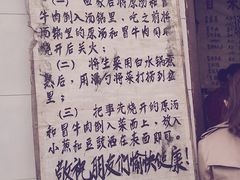 (一) 回家后将原汤和冒
牛肉倒入汤锅里，吃之前将
汤锅里的原汤和冒牛肉同
烧开后关火；
(二) 将生菜用白水锅煮
熟后，用漏勺将菜打捞到盆
里；
(三) 把事先烧开的原汤
和冒牛肉倒入菜面上，放入
小葱和豆豉洒在表面即可。
敬祝朋友们愉快健康！